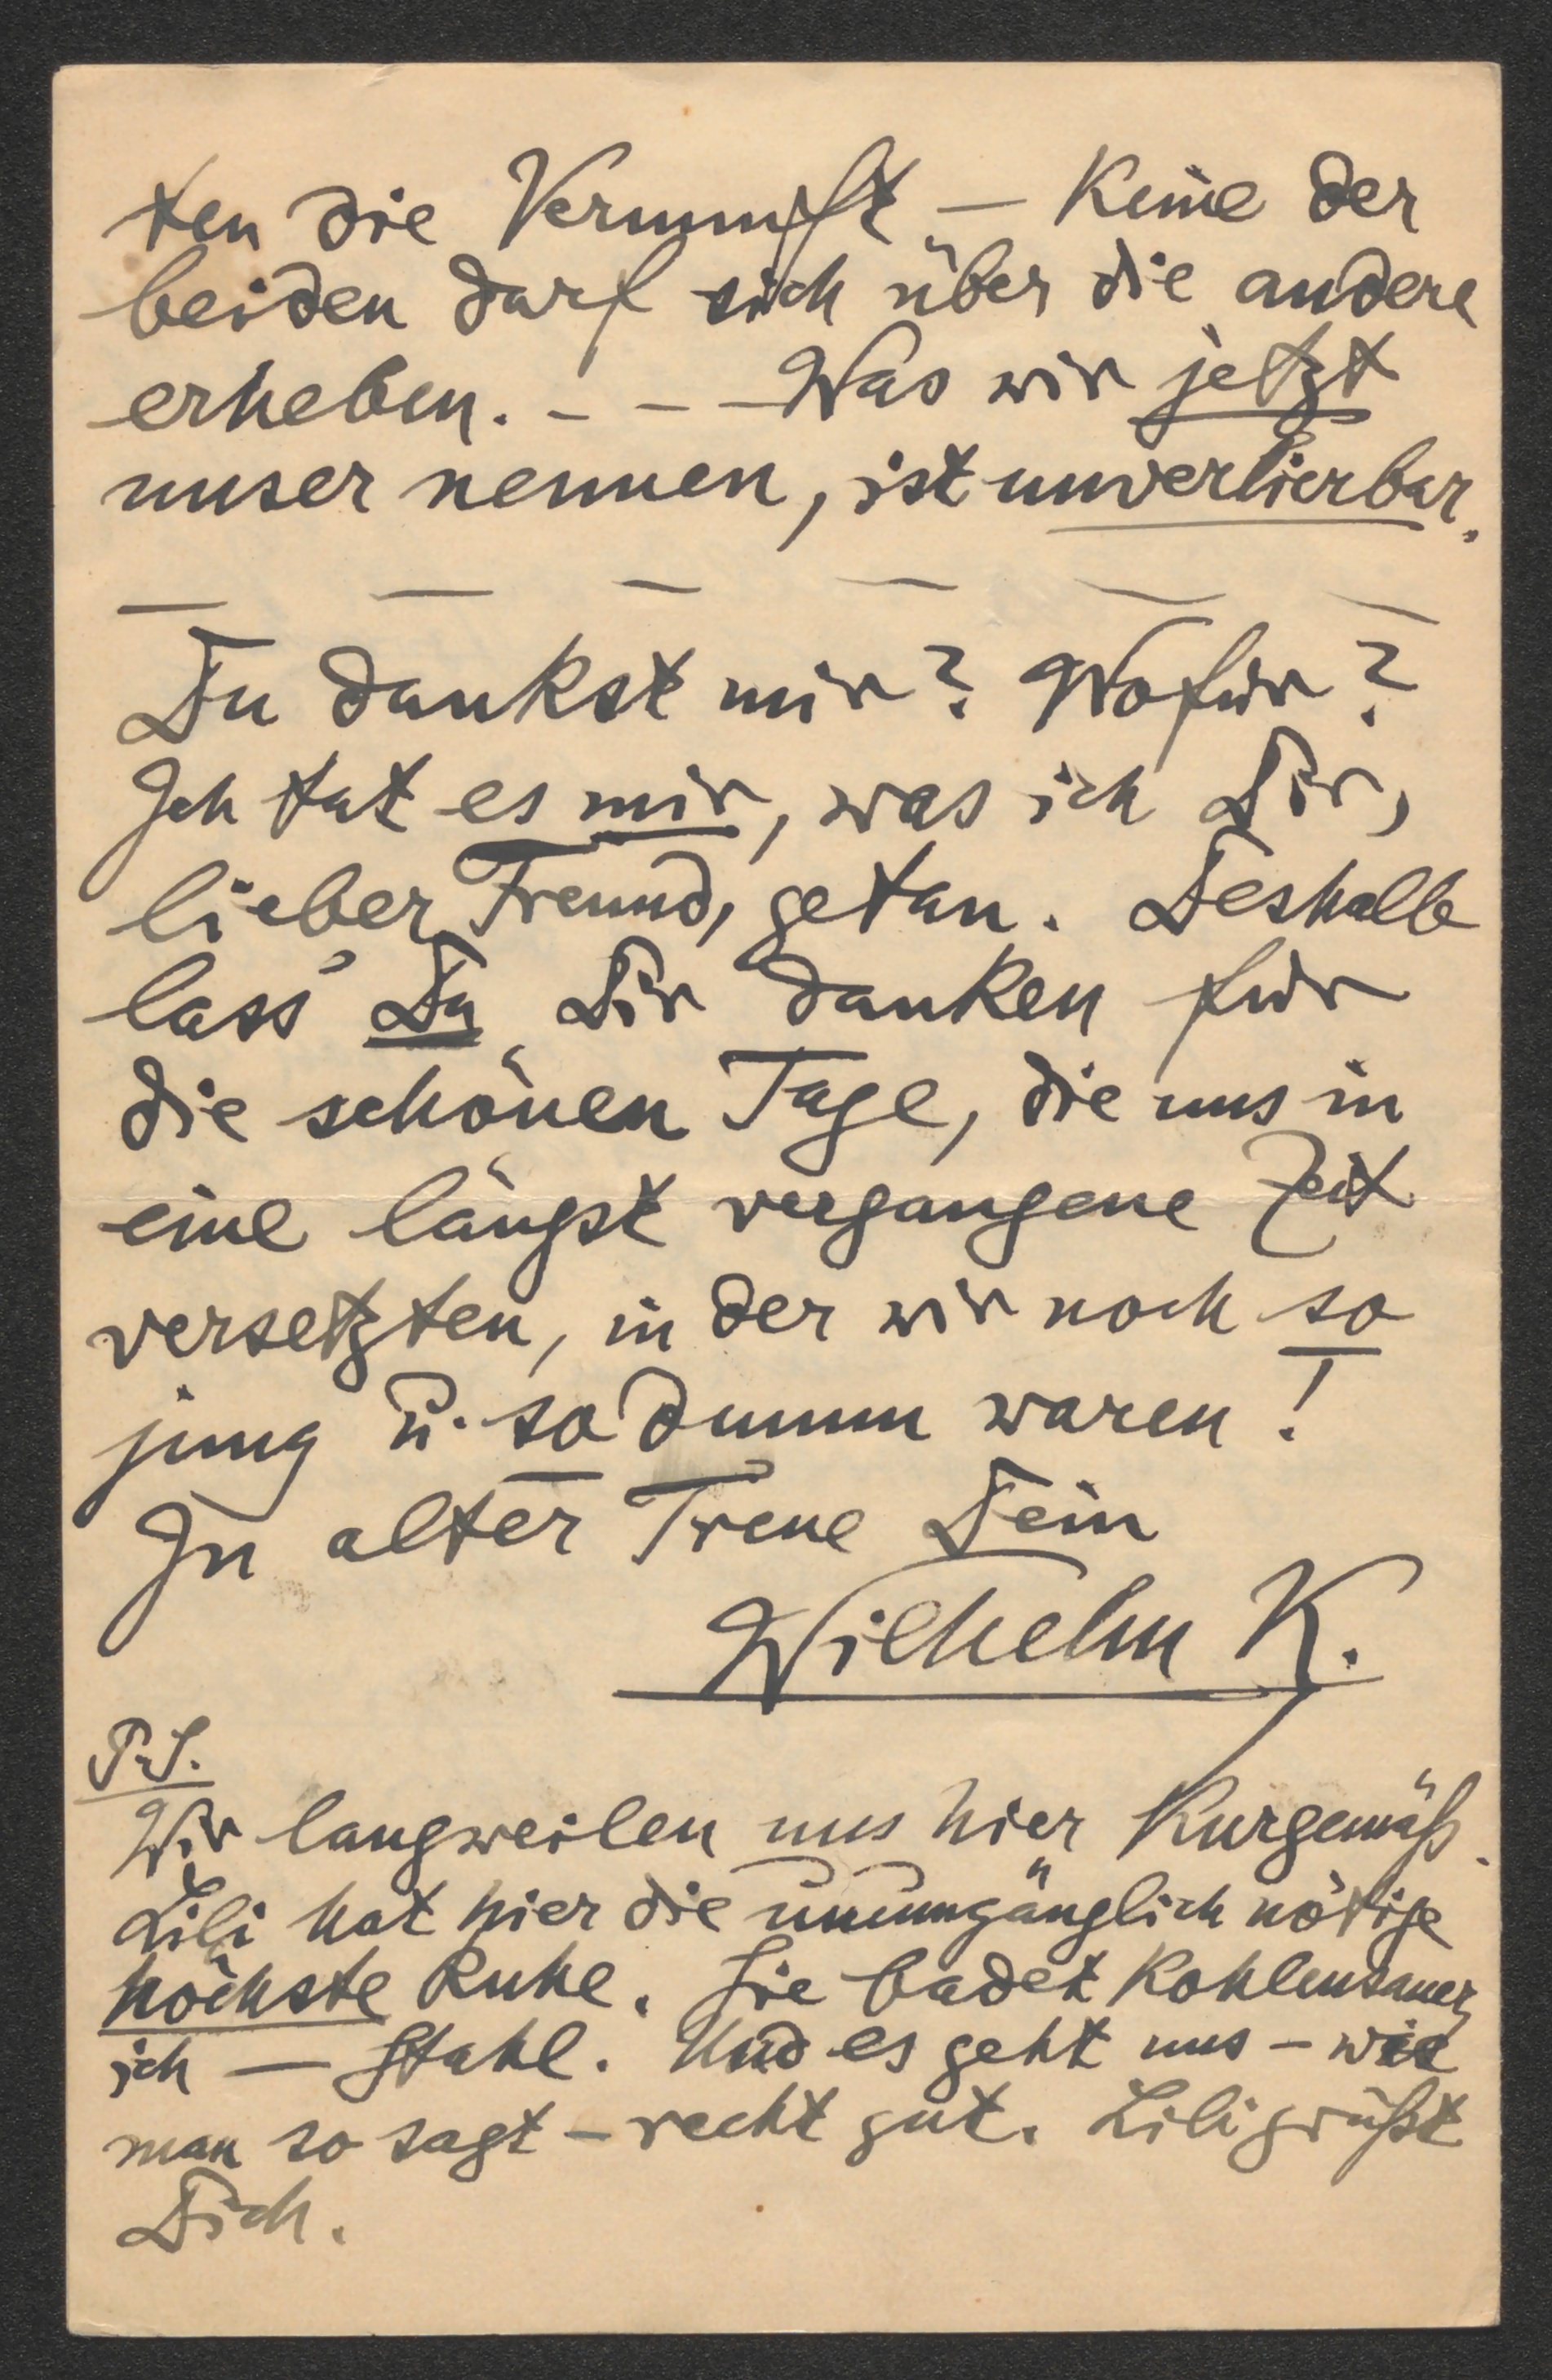 ten die Vernunft – Keine der
beiden darf sich über die andere
erheben. – – – Was wir jetzt
unser nennen, ist unverlierbar.
— — — — — —
Du dankst mir? Wofür?
Ich tat es mir, was ich Dir,
lieber Freund, getan. Deshalb
lass' Du Dir danken für
die schönen Tage, die uns in
eine längst vergangene Zeit
versetzten, in der wir noch so
jung u. so dumm waren!
In alter Treue Dein
Wilhelm K.
P.S.
Wir langweilen uns hier kurgemäß.
Lili hat hier die unumgänglich nötige
höchste Ruhe. Sie badet Kohlensauer,
ich – Stahl. Und es geht uns – wie
man so sagt – recht gut. Lili grüßt
Dich.